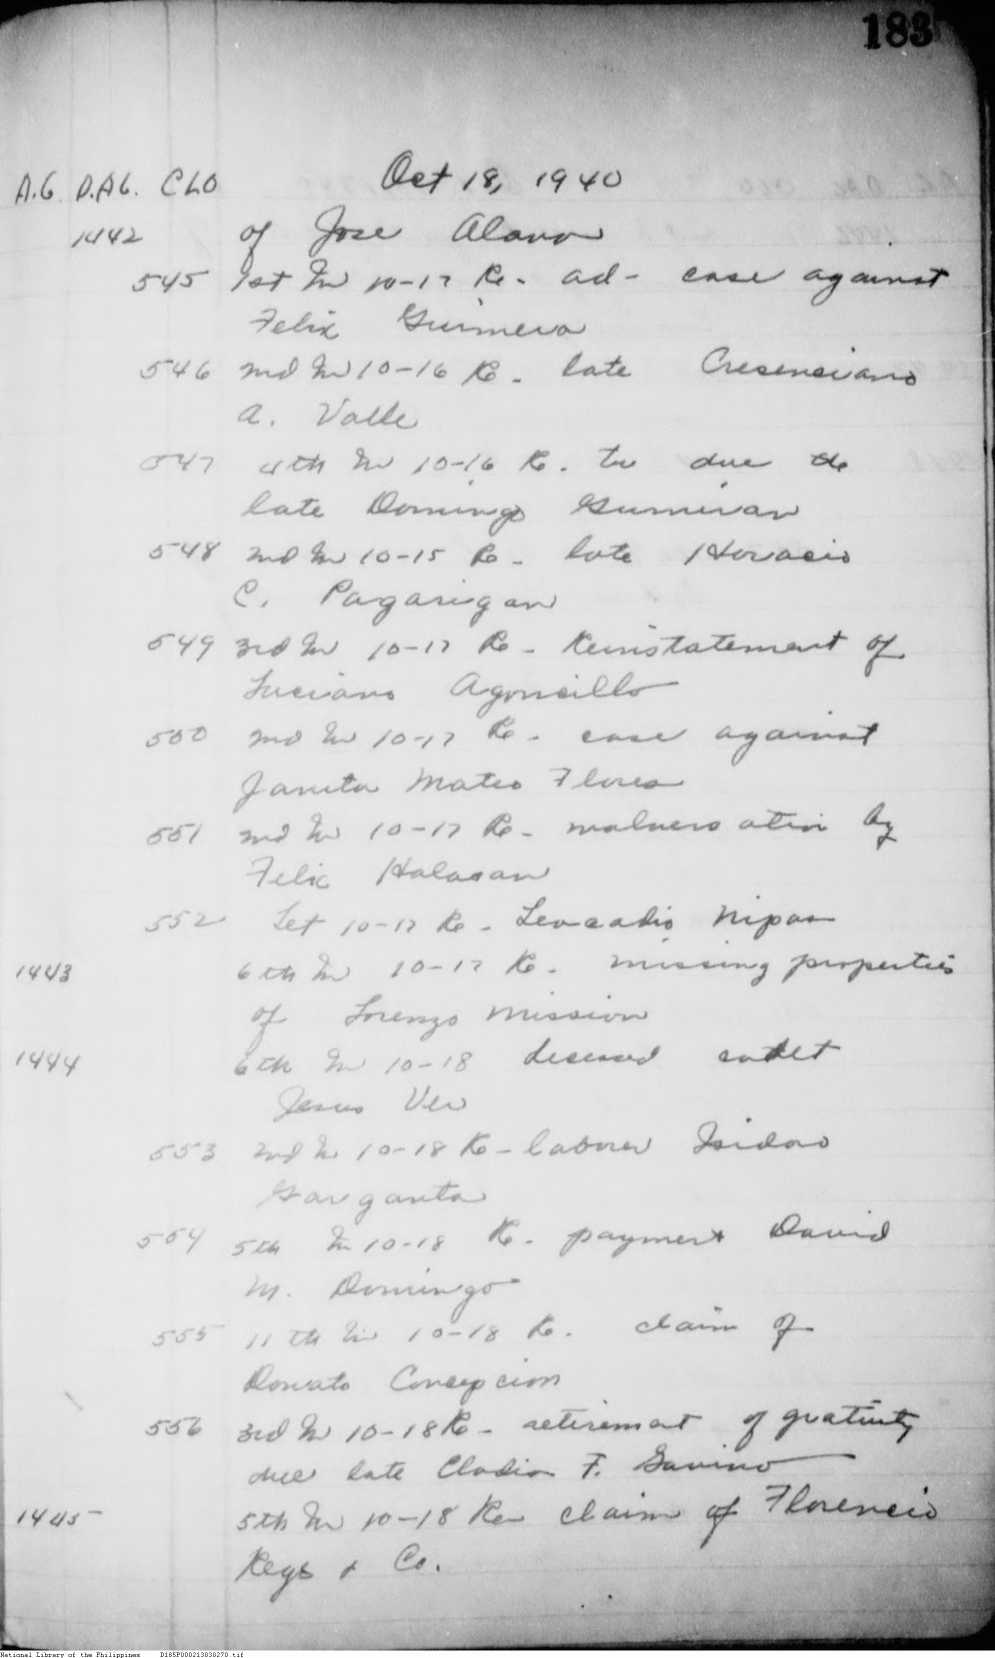 183
Oct 18, 1940
A.G. D.AG. CLO
1442 of Jose Alano
545 1st In 10-17 Re - ad - case against
Felix Guimera
546 2nd In 10-16 Re - late Cresenciano
A. Valle
547 4th In 10-16 Re. to due the
late Domingo Gumiran
548 2nd In 10-15 Re - late Horacio
C. Pagarigan
549 3rd In 10-17 Re - Reinstatement of
Luciano Agoncillo
550 2nd In 10-17 Re - case against
Janita Mateo Flores
551 2nd In 10-17 Re - malversation by
Felix Halasan
552 Let 10-17 Re - Leocadio Nipas
1443 6th In 10-17 Re - missing properties
of Lorenzo Mission
1444 6th In 10-18 deceased cadet
Jesus Ver
553 2nd In 10-18 Re - laborer Isidoro
Garganta
554 5th In 10-18 Re - payment David
M. Domingo
555 11th In 10-18 Re. claim of
Donato Concepcion
556 3rd In 10-18 Re - retirement of gratuity
due late Cladio F. Gavino
1445 5th In 10-18 Re claim of Florencio
Regs & Co.
National Library of the Philippines D185P000213838270.tif